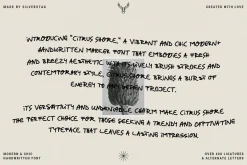 MADE BY SILVERSTAG
CREATED WITH LOVE
INTRODUCING "CITRUS SHORE," A VIBRANT AND CHIC MODERN
HANDWRITTEN MARKER FONT THAT EMBODIES A FRESH
AND BREEZY AESTHETIC. WITH ITS LIVELY BRUSH STROKES AND
CONTEMPORARY STYLE, CITRUS SHORE BRINGS A BURST OF
ENERGY TO ANY DESIGN PROJECT.
ITS VERSATILITY AND UNDENIABLE CHARM MAKE CITRUS SHORE
THE PERFECT CHOICE FOR THOSE SEEKING A TRENDY AND CAPTIVATING
TYPEFACE THAT LEAVES A LASTING IMPRESSION.
MODERN & CHIC
HANDWRITTEN FONT
OVER LIGATURES
& ALTERNATE LETTERS